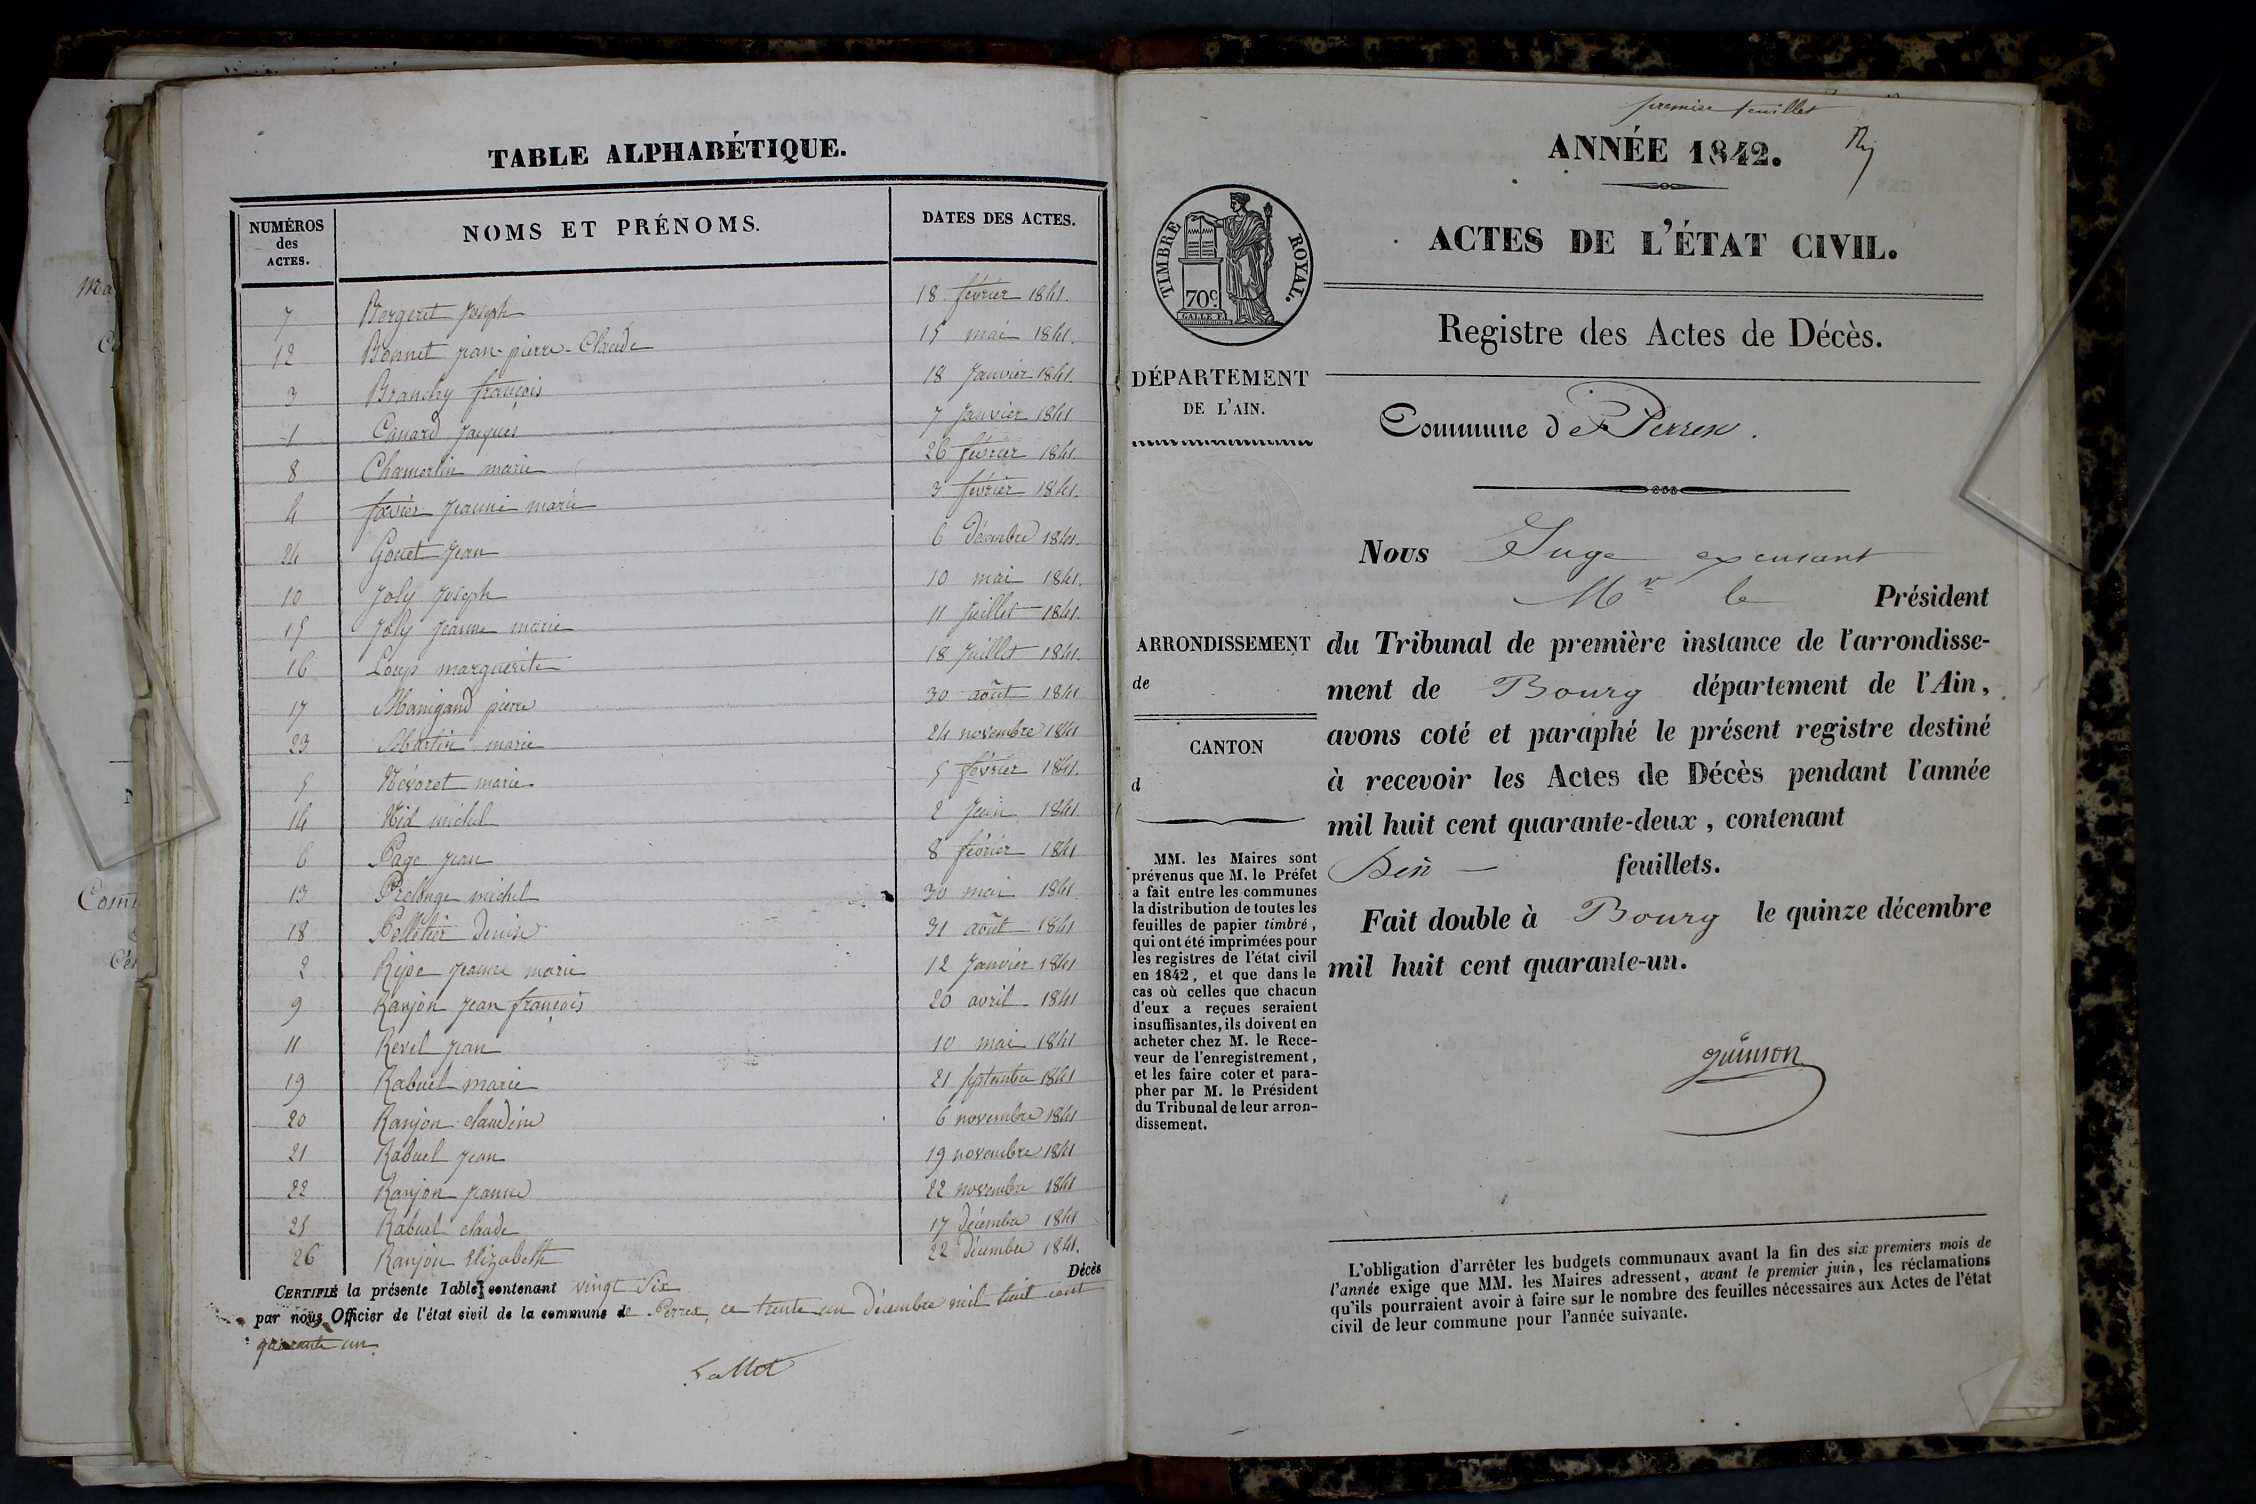 TABLE ALPHABÉTIQUE.
NUMÉROS des ACTES. NOMS ET PRÉNOMS. DATES DES ACTES.
7 Bergeret Joseph 18 février 1841.
12 Bonnet jean-pierre-Claude 15 mai 1841.
3 Branchy françois 18 Janvier 1841.
1 Canard Jacques 7 Janvier 1841
8 Chamerlin marie 26 février 1841.
4 favier Jeanne marie 3 février 1841.
24 Gouet Jean 6 Décembre 1841.
10 Joly Joseph 10 mai 1841.
15 Joly Jeanne marie 11 Juillet 1841.
16 Loup marguerite 18 Juillet 1841.
17 Manigand pierre 30 août 1841
23 Martin marie 24 novembre 1841
5 Névoret marie 5 février 1841.
14 Nid michel 2 Juin 1841
6 Page Jean 8 février 1841
13 Prelonge michel 30 mai 1841
18 Pelletier Denise 31 août 1841
2 Ripe Jeanne marie 12 Janvier 1841
9 Ranjon Jean françois 20 avril 1841
11 Revel Jean 10 mai 1841
19 Rabuel marie 21 septembre 1841
20 Ranjon claudine 6 novembre 1841
21 Rabuel Jean 19 novembre 1841
22 Ranjon Jeanne 22 novembre 1841
25 Rabuel claude 17 Décembre 1841
26 Ranjon Elizabeth 22 Décembre 1841.
CERTIFIÉ la présente Table contenant vingt Six Décès
par nous Officier de l'état civil de la commune de Perrex, ce trente un Décembre mil huit cent
quarante un.
premier feuillet
ANNÉE 1842.
ACTES DE L'ÉTAT CIVIL.
TIMBRE ROYAL.
70c
Registre des Actes de Décès.
DÉPARTEMENT
DE L'AIN.
Commune de Perrex.
Nous Juge excusant
Mr le Président
ARRONDISSEMENT
de
CANTON
d
du Tribunal de première instance de l'arrondisse-
ment de Bourg département de l'Ain,
avons coté et paraphé le présent registre destiné
à recevoir les Actes de Décès pendant l'année
mil huit cent quarante-deux, contenant
feuillets.
Fait double à Bourg le quinze décembre
mil huit cent quarante-un.
MM. les Maires sont
prévenus que M. le Préfet
a fait entre les communes
la distribution de toutes les
feuilles de papier timbré,
qui ont été imprimées pour
les registres de l'état civil
en 1842, et que dans le
cas où celles que chacun
d'eux a reçues seraient
insuffisantes, ils doivent en
acheter chez M. le Rece-
veur de l'enregistrement,
et les faire coter et para-
pher par M. le Président
du Tribunal de leur arron-
dissement.
guinson
L'obligation d'arrêter les budgets communaux avant la fin des six premiers mois de
l'année exige que MM. les Maires adressent, avant le premier juin, les réclamations
qu'ils pourraient avoir à faire sur le nombre des feuilles nécessaires aux Actes de l'état
civil de leur commune pour l'année suivante.